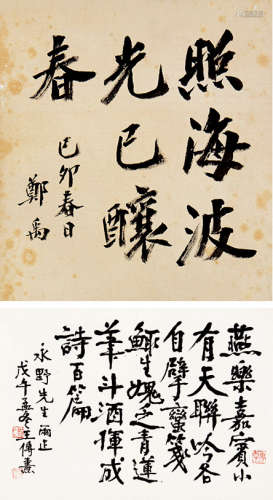 照海波
光已釀
春
己卯春日
鄭禹
燕樂嘉賓小
有天聯吟各
自擘蠻箋
鯫生媿乏青蓮
筆斗酒揮成
詩百篇
永野先生兩正
戊午孟冬王傳薰